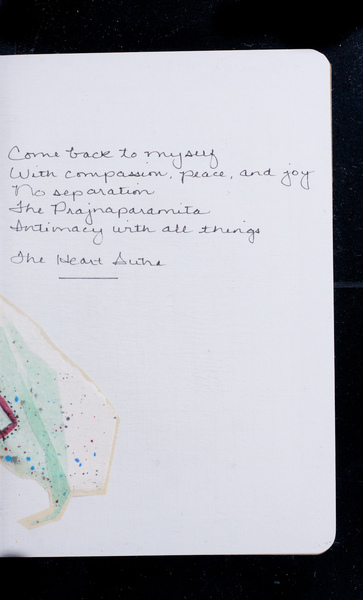 Come back to myself
With compassion, peace, and joy
No separation
The Prajnaparamita
Intimacy with all things
The Heart Sutra